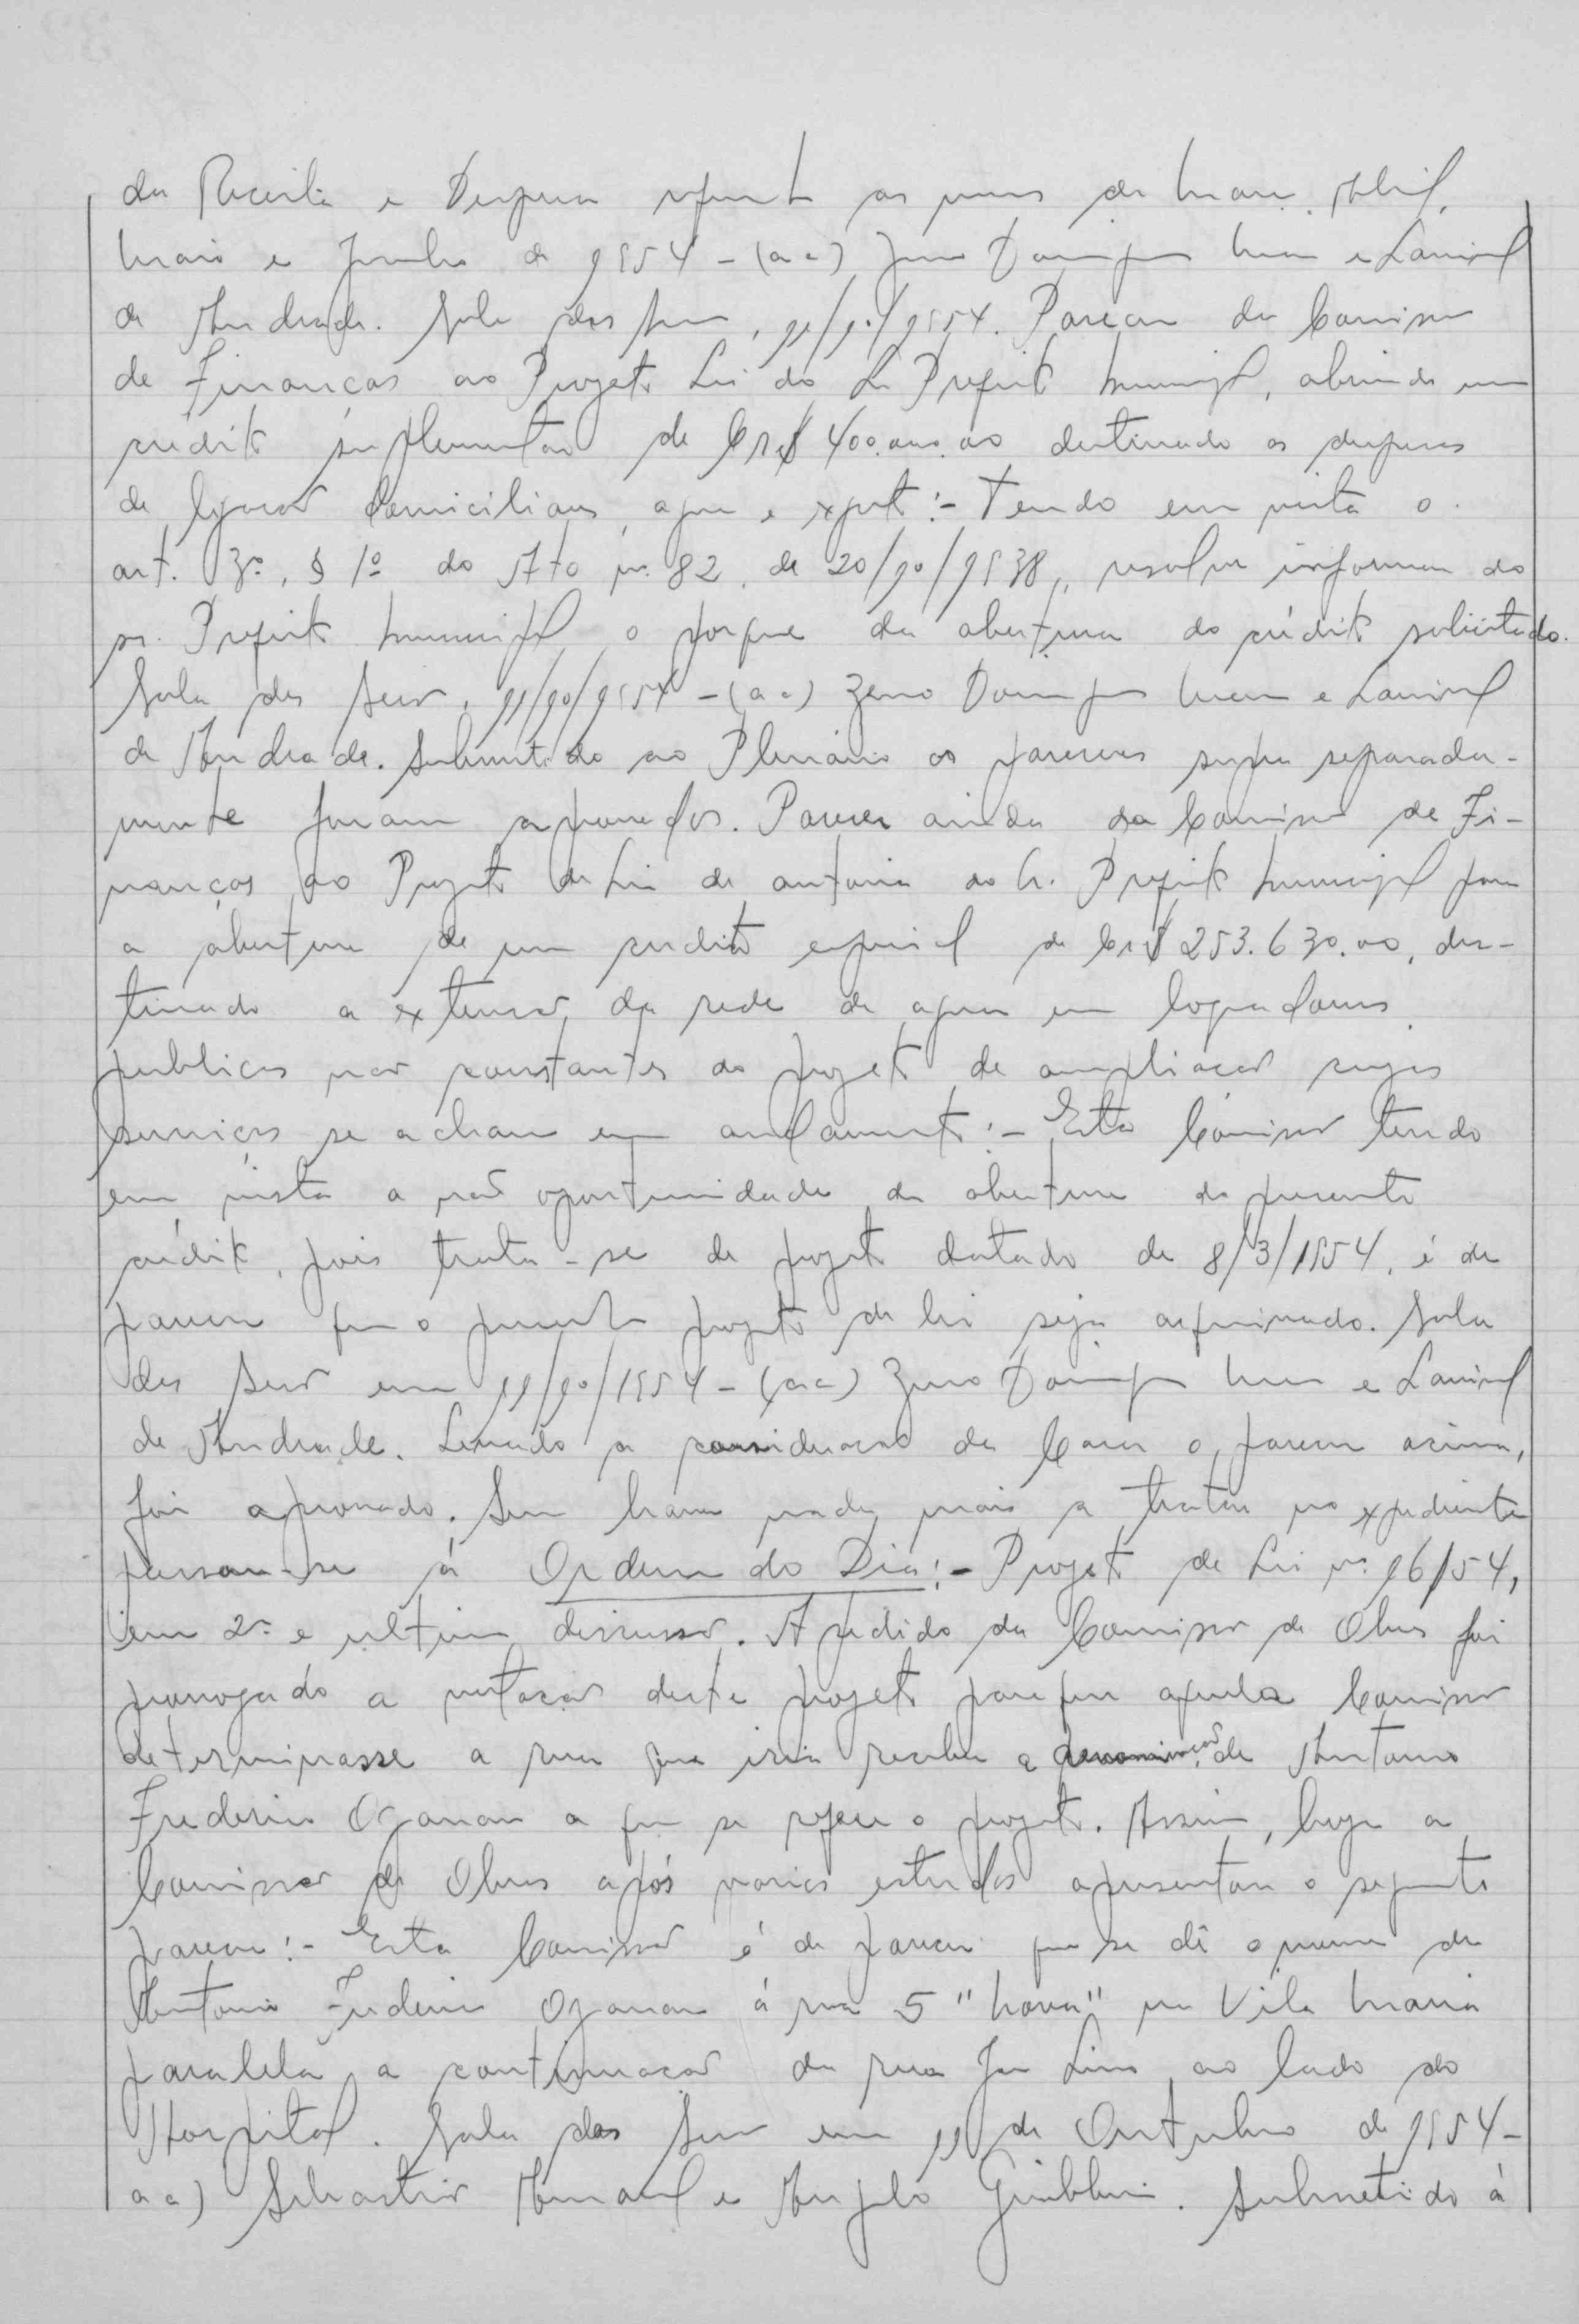 da Receita e Despesa referente aos meses de Março, Abril,
Maio e Junho de 1954 - (aa) Zeno Domingues Maia e Lourival
de Andrade. Sala das Sessões, 11/10/1954. Parecer da Comissão
de Finanças ao Projeto Lei do Sr. Prefeito Municipal, abrindo um
crédito suplementar de Cr$ 400.000,00 destinado as despesas
de ligações domiciliares, agua e esgoto:- Tendo em vista o
art. 3º, § 1º do Ato nº 82, de 20/10/1938, resolve informar do
sr. Prefeito Municipal o porque da abertura do crédito solicitado.
Sala das Sessões, 11/10/1954 - (aa) Zeno Domingues e Lourival
de Andrade. Submetido ao Plenário os pareceres supra separada-
mente foram aprovados. Parecer ainda da Comissão de Fi-
nanças ao Projeto de Lei de autoria do Sr. Prefeito Municipal para
a abertura de um credito especial de Cr$ 253.630,00, des-
tinado a extensão da rede de agua em logradouros
publicos não constantes do projeto de ampliação cujos
serviços se acham em andamento:- Esta Comissão tendo
em vista a não oportunidade da abertura do presente
crédito, pois trata-se de projeto datado de 8/3/1954, é de
parecer que o presente projeto de lei seja arquivado. Sala
das Sessões em 11/10/1954 - (aa) Zeno Domingues e Lourival
de Andrade. Levado a consideração da Casa o parecer acima,
foi aprovado. Sem haver nada mais a tratar no expediente
passou-se á Ordem do Dia:- Projeto de Lei nº 16/54,
em 2ª e ultima discussão. A pedido da Comissão de Obras foi
prorrogado a votação deste projeto para que aquela Comissão
determinasse a rua que iria receber a denominação de Antonio
Frederico Ozanan a que se refere o projeto. Assim, hoje a
Comissão de Obras após varios estudos apresentou o seguinte
parecer:- Esta Comissão é de parecer que se dê o nome de
Antonio Frederico Ozanan á rua 5 "Nova" na Vila Maria
paralela a continuação da rua José Lins ao lado do
Hospital. Sala das Sessões em 11 de Outubro de 1954-
aa) Sebastião e Angelo. Submetido á